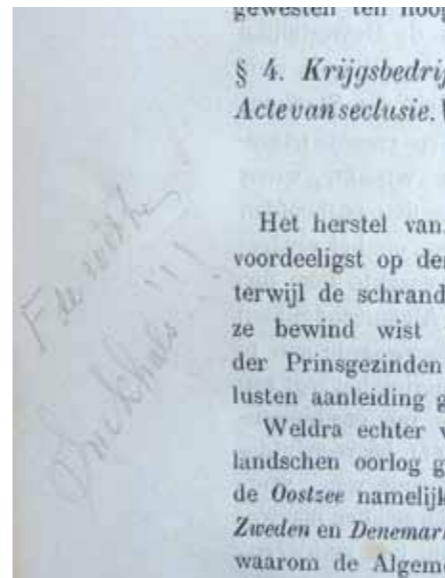 gewesten ten hoog
§ 4. Krijgsbedrij
Acte van seclusie.
F de with
!!!
Het herstel van
voordeeligst op de
terwijl de schrand
ze bewind wist
der Prinsgezinden
lusten aanleiding g
Weldra echter v
landschen oorlog g
de Oostzee namelijk
Zweden en Denemar
waarom de Algem